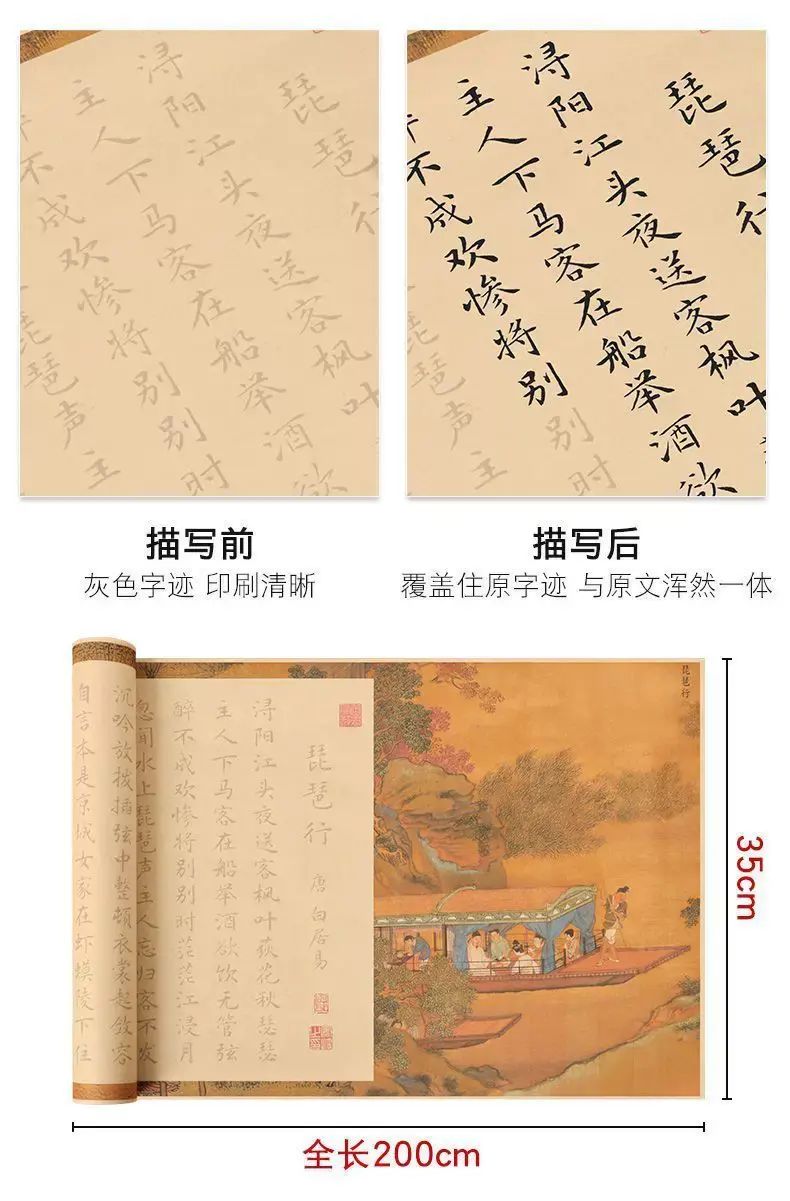 琵琶行
浔阳江头夜送客枫叶
主人下马客在船举酒欲
不成欢惨将别别时
琵琶声主
琵琶行
浔阳江头夜送客枫叶
主人下马客在船举酒欲
不成欢惨将别别时
琵琶声主
描写前
灰色字迹 印刷清晰
描写后
覆盖住原字迹 与原文浑然一体
琵琶行
琵琶行 唐 白居易
浔阳江头夜送客枫叶荻花秋瑟瑟
主人下马客在船举酒欲饮无管弦
醉不成欢惨将别别时茫茫江浸月
忽闻水上琵琶声主人忘归客不发
沉吟放拨插弦中整顿衣裳起敛容
自言本是京城女家在虾蟆陵下住
35cm
全长200cm